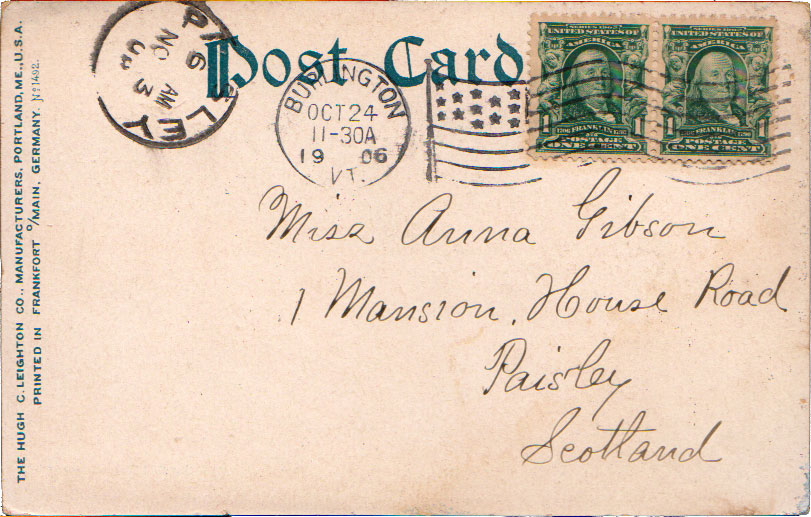 Post Card
BURLINGTON
OCT 24
11-30A
1906
VT.
LEY
6
NO 3
AM
SERIES 1902
UNITED STATES OF
AMERICA
1 1
FRANKLIN
POSTAGE
ONE CENT
SERIES 1902
UNITED STATES OF
AMERICA
1 1
FRANKLIN
POSTAGE
ONE CENT
Miss Anna Gibson
1 Mansion House Road
Paisley
Scotland
THE HUGH C. LEIGHTON CO., MANUFACTURERS, PORTLAND, ME., U.S.A.
PRINTED IN FRANKFORT O/MAIN, GERMANY. No 1492.